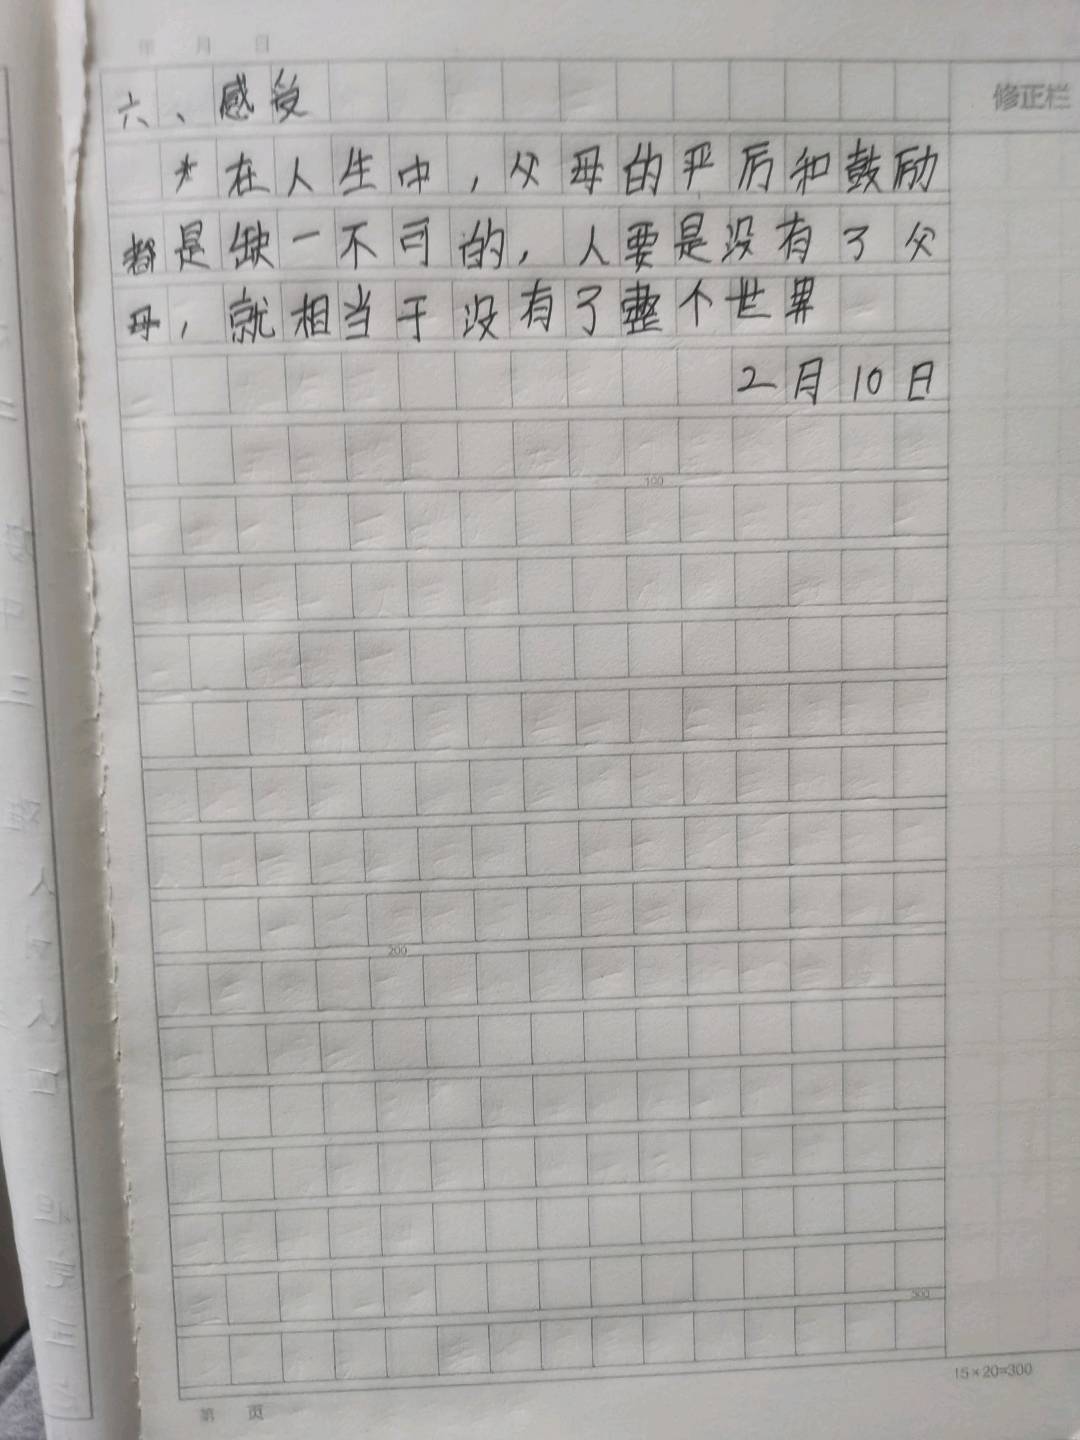 年 月 日
修正栏
六、感受
*在人生中,父母的严厉和鼓励
都是缺一不可的,人要是没有了父
母,就相当于没有了整个世界
2月10日
100
200
300
15×20=300
第 页